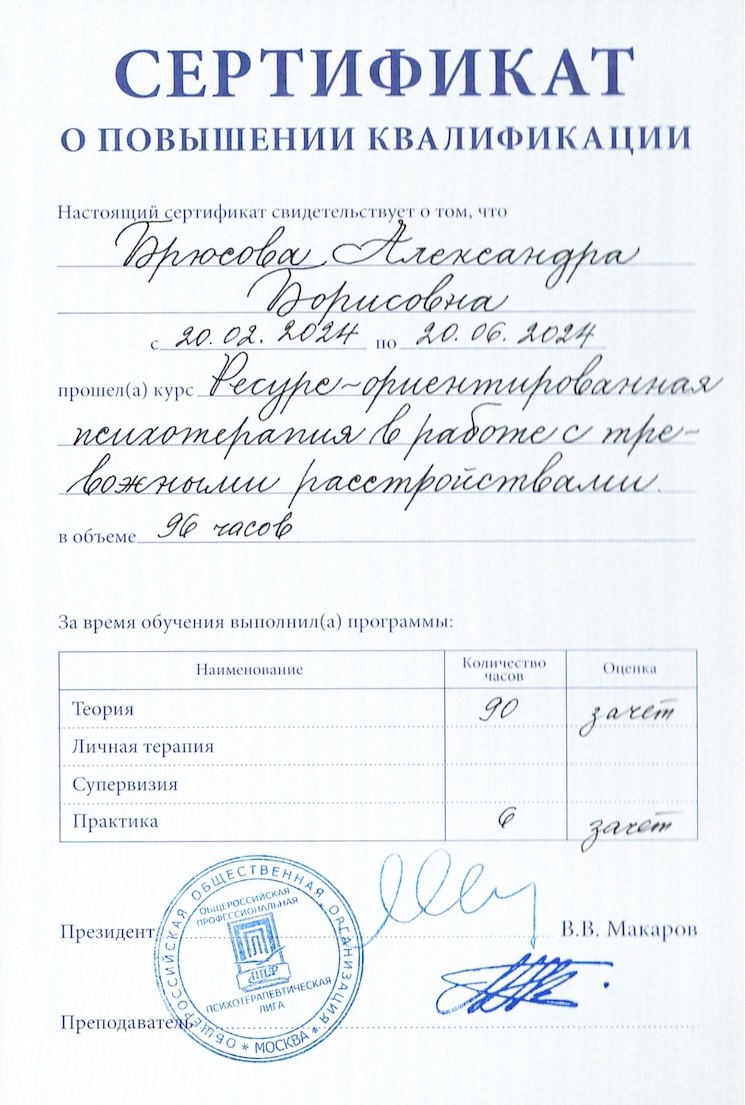 СЕРТИФИКАТ
О ПОВЫШЕНИИ КВАЛИФИКАЦИИ
Настоящий сертификат свидетельствует о том, что
Брюсова Александра
Борисовна
с 20.02.2024 по 20.06.2024
прошел(а) курс Ресурс-ориентированная
психотерапия в работе с тре-
вожными расстройствами.
в объеме 96 часов
За время обучения выполнил(а) программы:
Наименование Количество часов Оценка
Теория 90 зачет
Личная терапия
Супервизия
Практика 6 зачет
Президент В.В. Макаров
Преподаватель
ОБЩЕРОССИЙСКАЯ ОБЩЕСТВЕННАЯ ОРГАНИЗАЦИЯ * МОСКВА *
ОБЩЕРОССИЙСКАЯ
ПРОФЕССИОНАЛЬНАЯ
ППЛ
ПСИХОТЕРАПЕВТИЧЕСКАЯ
ЛИГА